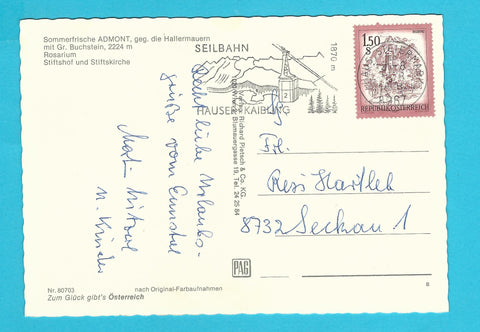 Sommerfrische ADMONT, geg. die Hallermauern
mit Gr. Buchstein, 2224 m
Rosarium
Stiftshof und Stiftskirche
SEILBAHN
1870 m
HAUSER KAIBLING
2
1.50
S
REPUBLIK ÖSTERREICH
8967
Recht liebe Urlaubs-
grüße vom Ennstal
u. Kinder
Verlag Richard Pietsch & Co. KG.
Wien, Blumauergasse 19, Tel. 24 25 84
Fr.
Resi Hartleb
8732 Seckau 1
PAG
Nr. 80703
nach Original-Farbaufnahmen
B
Zum Glück gibt's Österreich